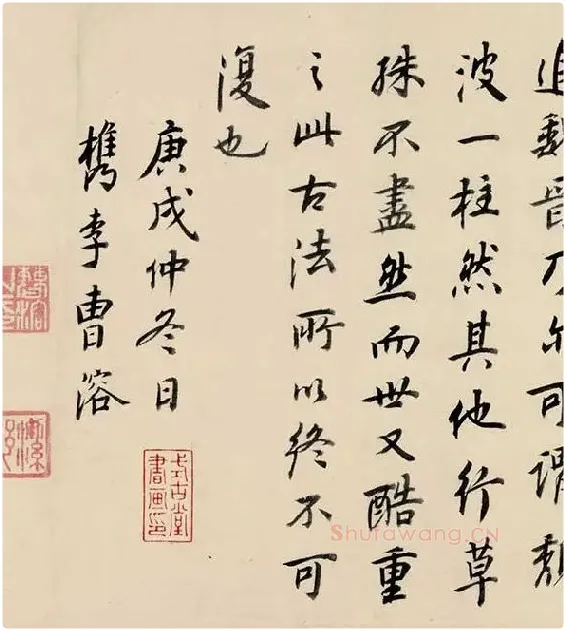 追晉乃尔可谓頹
波一柱然其他行草
殊不盡然而世又酷重
之此古法所以终不可
復也
庚戌仲冬日
檇李曹溶
式古堂
書画印
Shufawang.CN